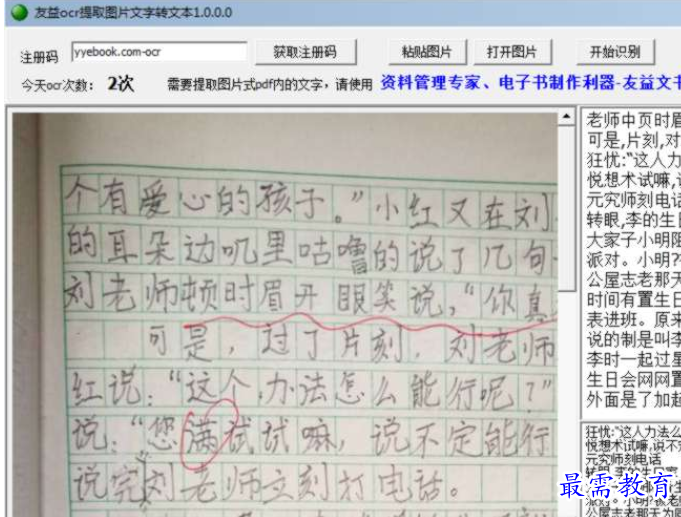 友益ocr提取图片文字转文本1.0.0.0
注册码 yyebook.com-ocr 获取注册码 粘贴图片 打开图片 开始识别
今天ocr次数： 2次 需要提取图片式pdf内的文字，请使用 资料管理专家、电子书制作利器-友益文书
个有爱心的孩子。”小红又在刘
的耳朵边叽里咕噜的说了几句
刘老师顿时眉开眼笑说，“你真
可是，过了片刻，刘老师
红说：“这个办法怎么能行呢？”
说：“您满试试嘛，说不定能行
说完刘老师立刻打电话。
老师中页时眉
可是,片刻,对
狂忧:“这人力
悦想术试嘛,说
元究师刻电话
转眼,李的生日
大家子小明阳
派对。小明?衤
公屋志老那天
时间有置生日
表进班。原来
说的制是叫李
李时一起过星
生日会网网置
外面是了加起
狂忧:“这人力法么
悦想术试嘛,说不定
元究师刻电话
最需教育